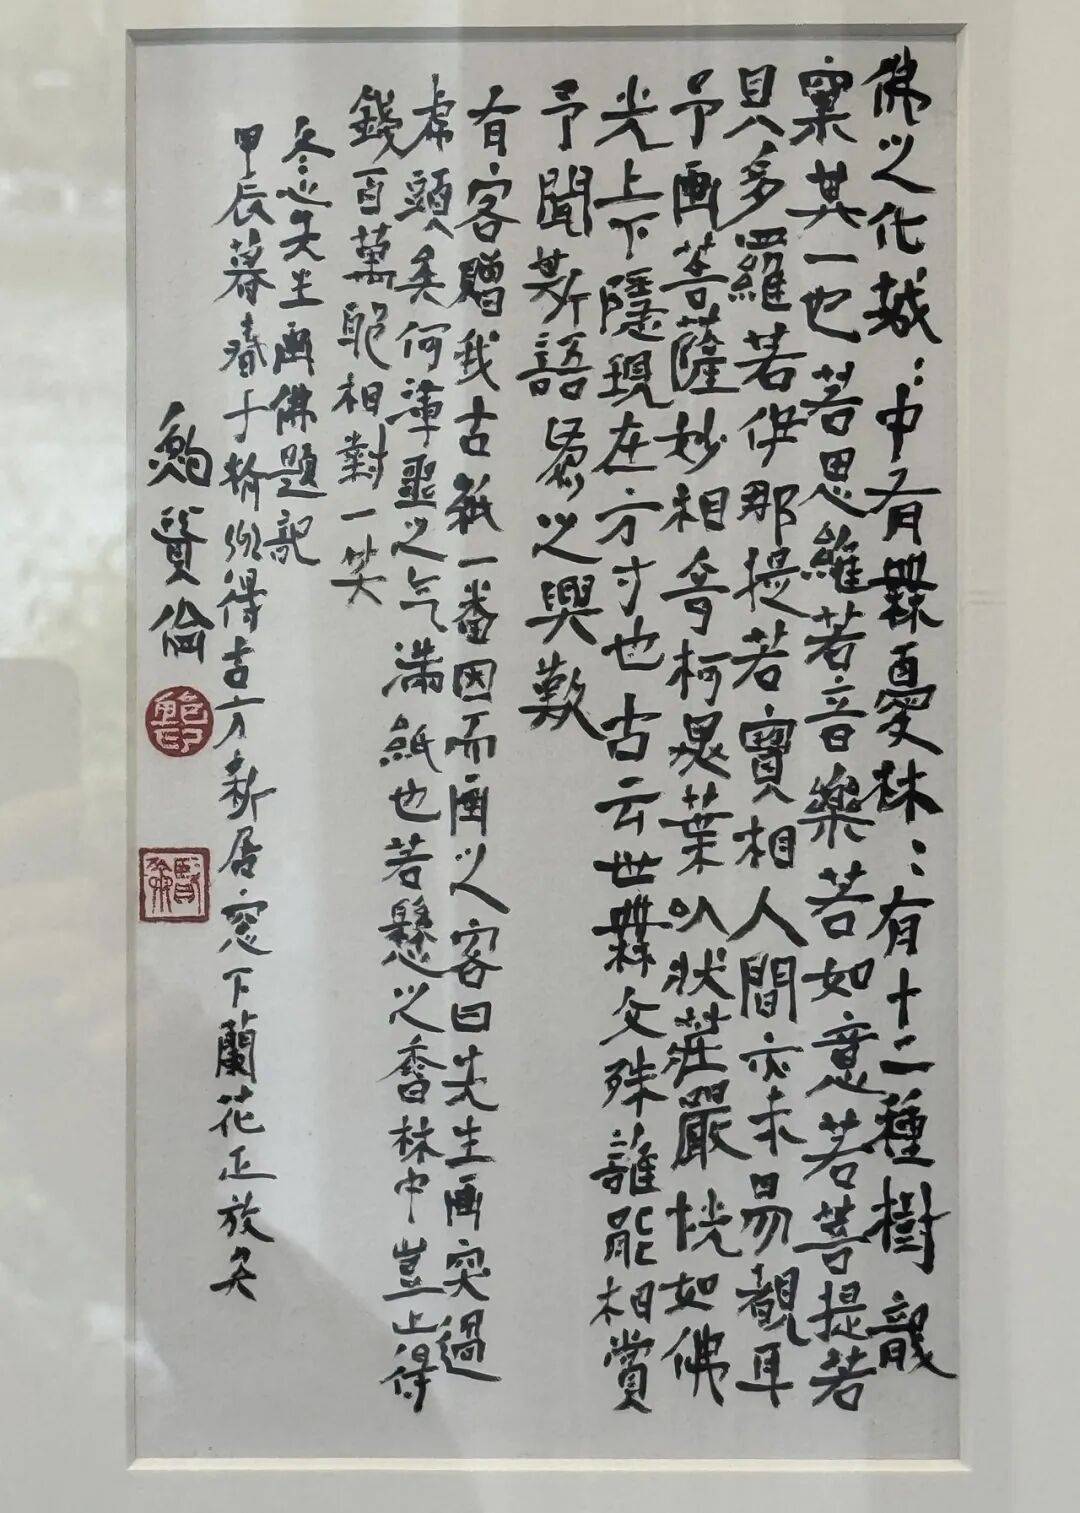 佛之化城々中有無憂林々有十二種樹龍
窠其一也若思維若音樂若如意若菩提若
貝多羅若伊那提若寶相人間亦未易覩耳
予画菩薩妙相奇柯異葉以狀莊嚴恍如佛
光上下隱現在方寸也古云世無文殊誰能相賞
予聞斯語爲之興歎
有客贈我古紙一番因而画之客曰先生画突過
虎頭矣何渾噩之气滿紙也若懸之香林中豈止得
錢百萬耶相對一笑
冬心先生画佛題記
甲辰暮春于得古方新居窗下蘭花正放矣
鮑賢倫
鮑印
賢倫